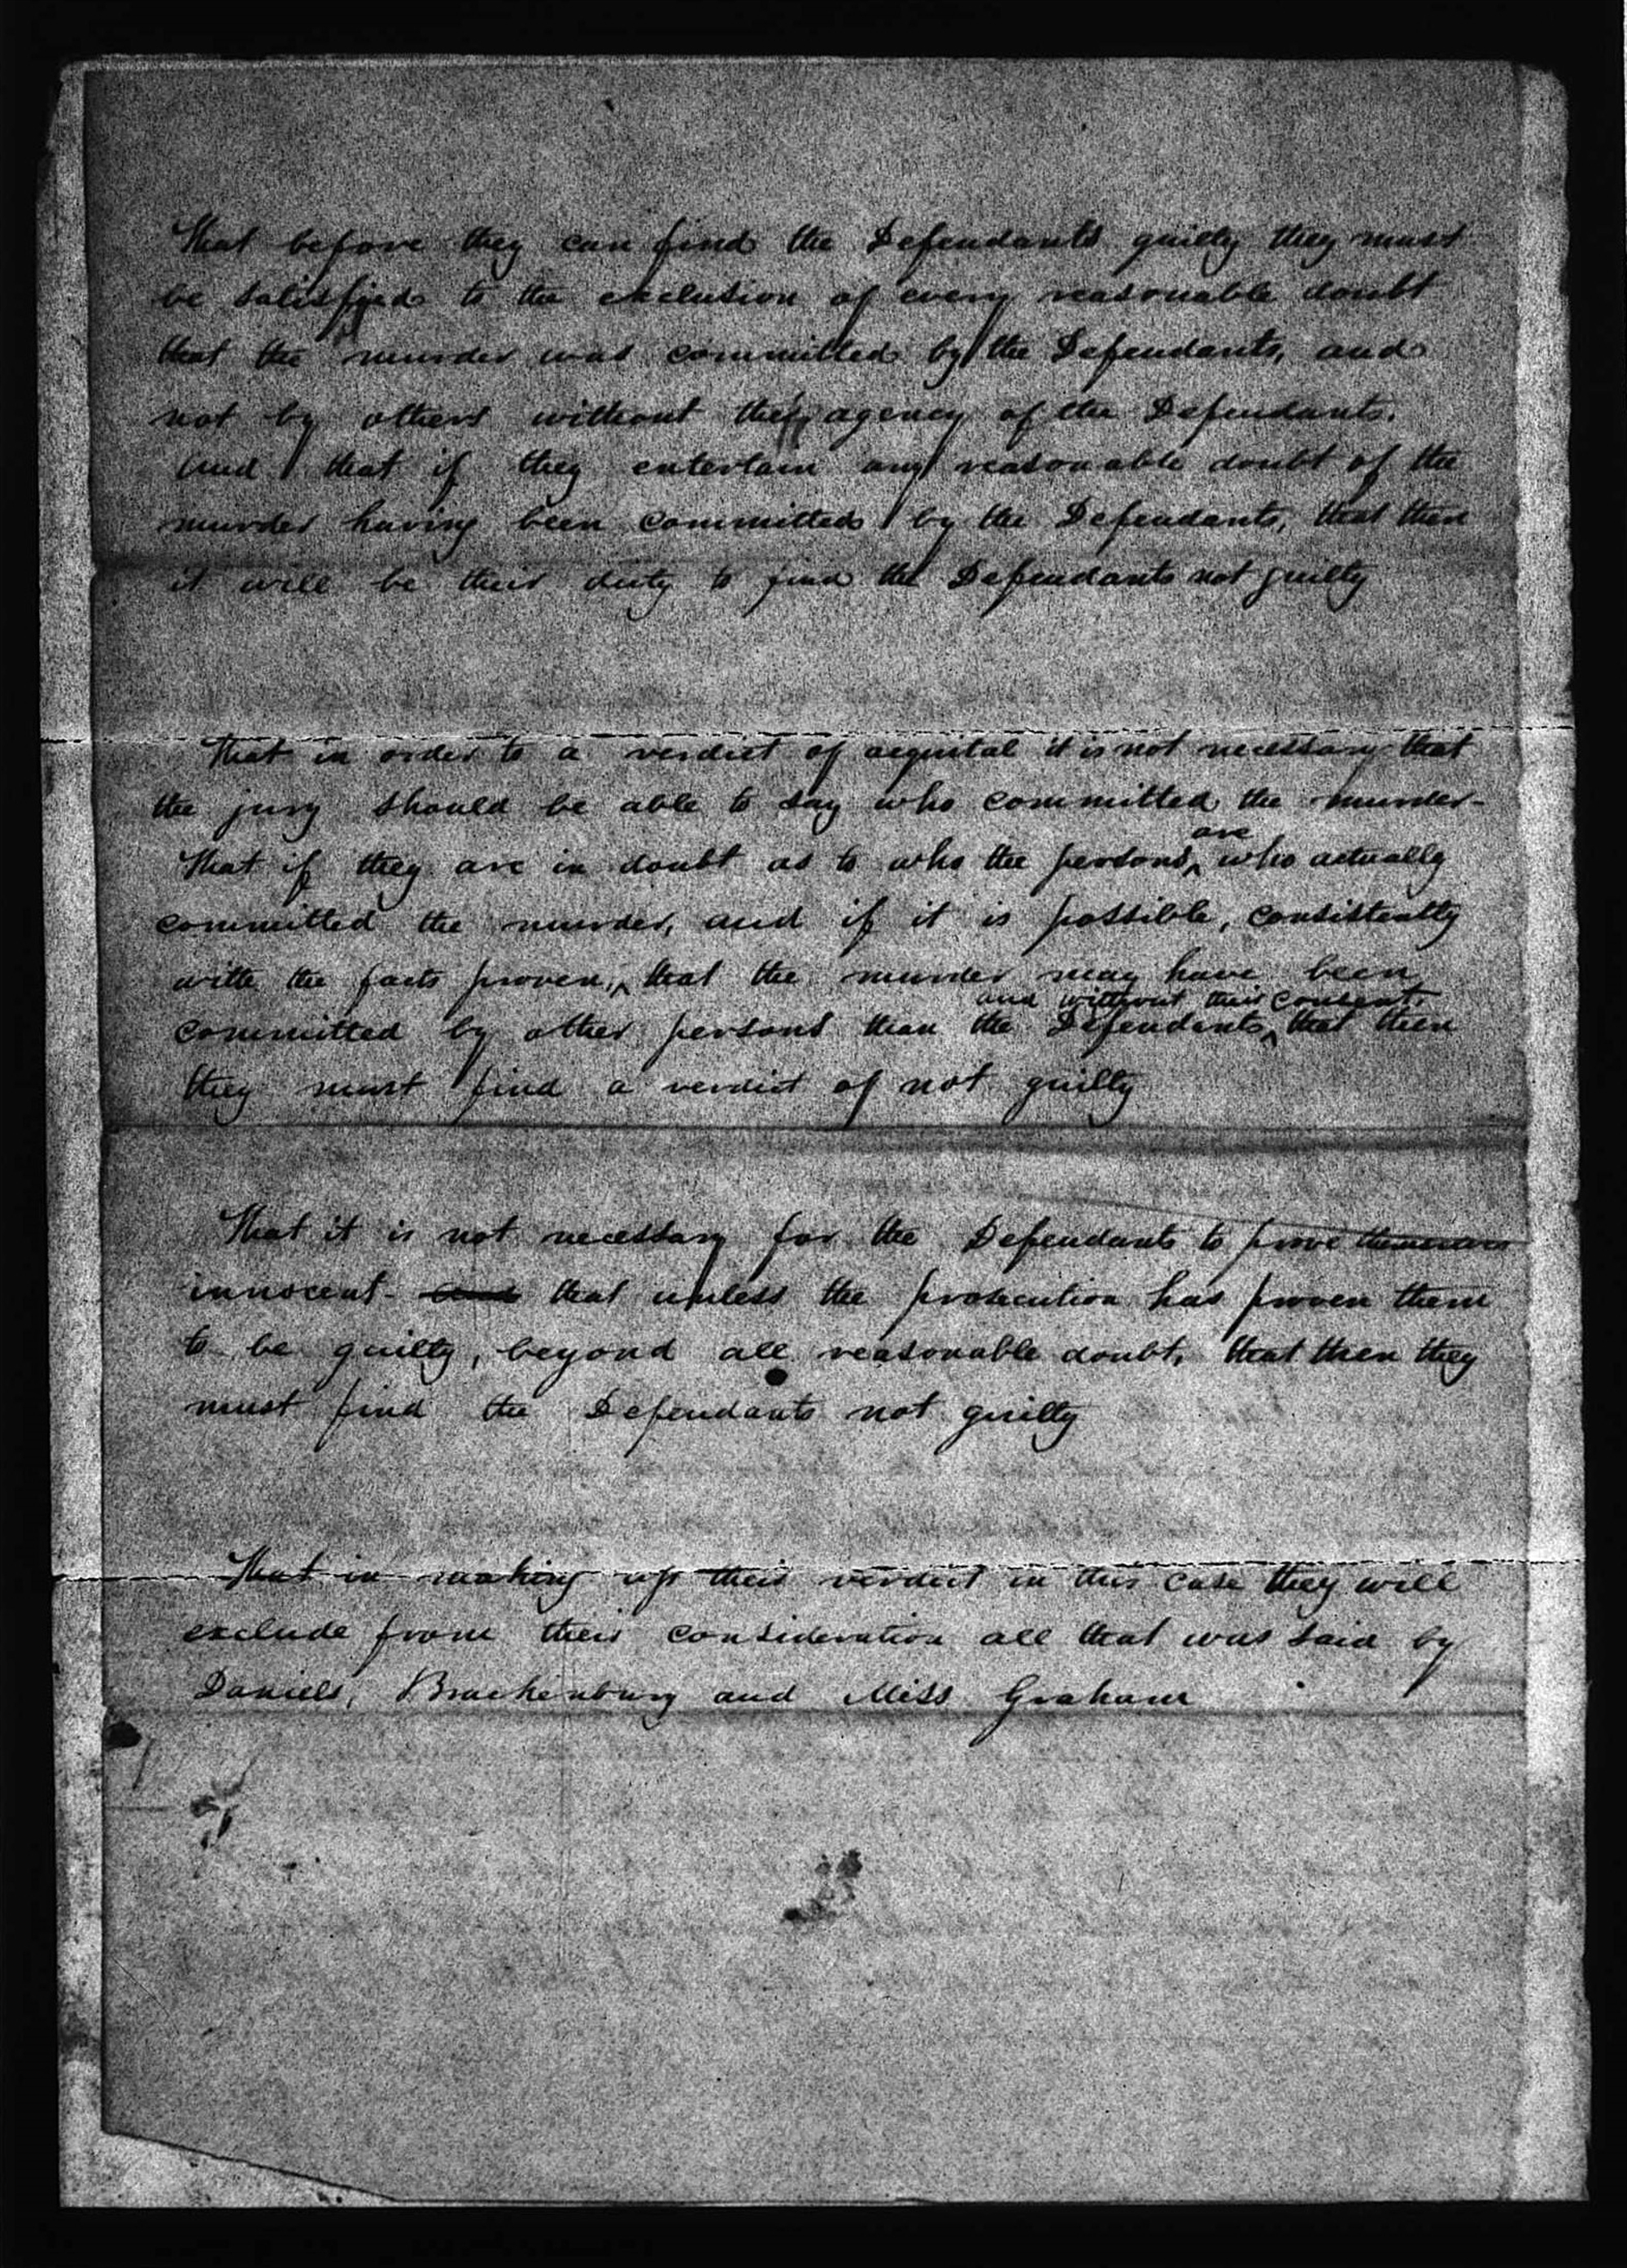 That before they can find the Defendants guilty they must
be satisfied to the exclusion of every reasonable doubt
that the murder was committed by the Defendants, and
not by others without the agency of the Defendants.
And that if they entertain any reasonable doubt of the
murder having been committed by the Defendants, that then
it will be their duty to find the Defendants not guilty
That in order to a verdict of acquital it is not necessary that
the jury should be able to say who committed the murder-
are
That if they are in doubt as to who the persons ^ who actually
committed the murder, and if it is possible, consistently
with the facts proven, ^ that the murder may have been
and without their consent
committed by other persons than the Defendants, ^ that then
they must find a verdict of not guilty
That it is not necessary for the Defendants to prove themselves
innocent- and that unless the prosecution has proven them
to be guilty, beyond all reasonable doubt, that then they
must find the Defendants not guilty
That in making up their verdict in this case they will
exclude from their consideration all that was said by
Daniels, Brackenbury and Miss Graham